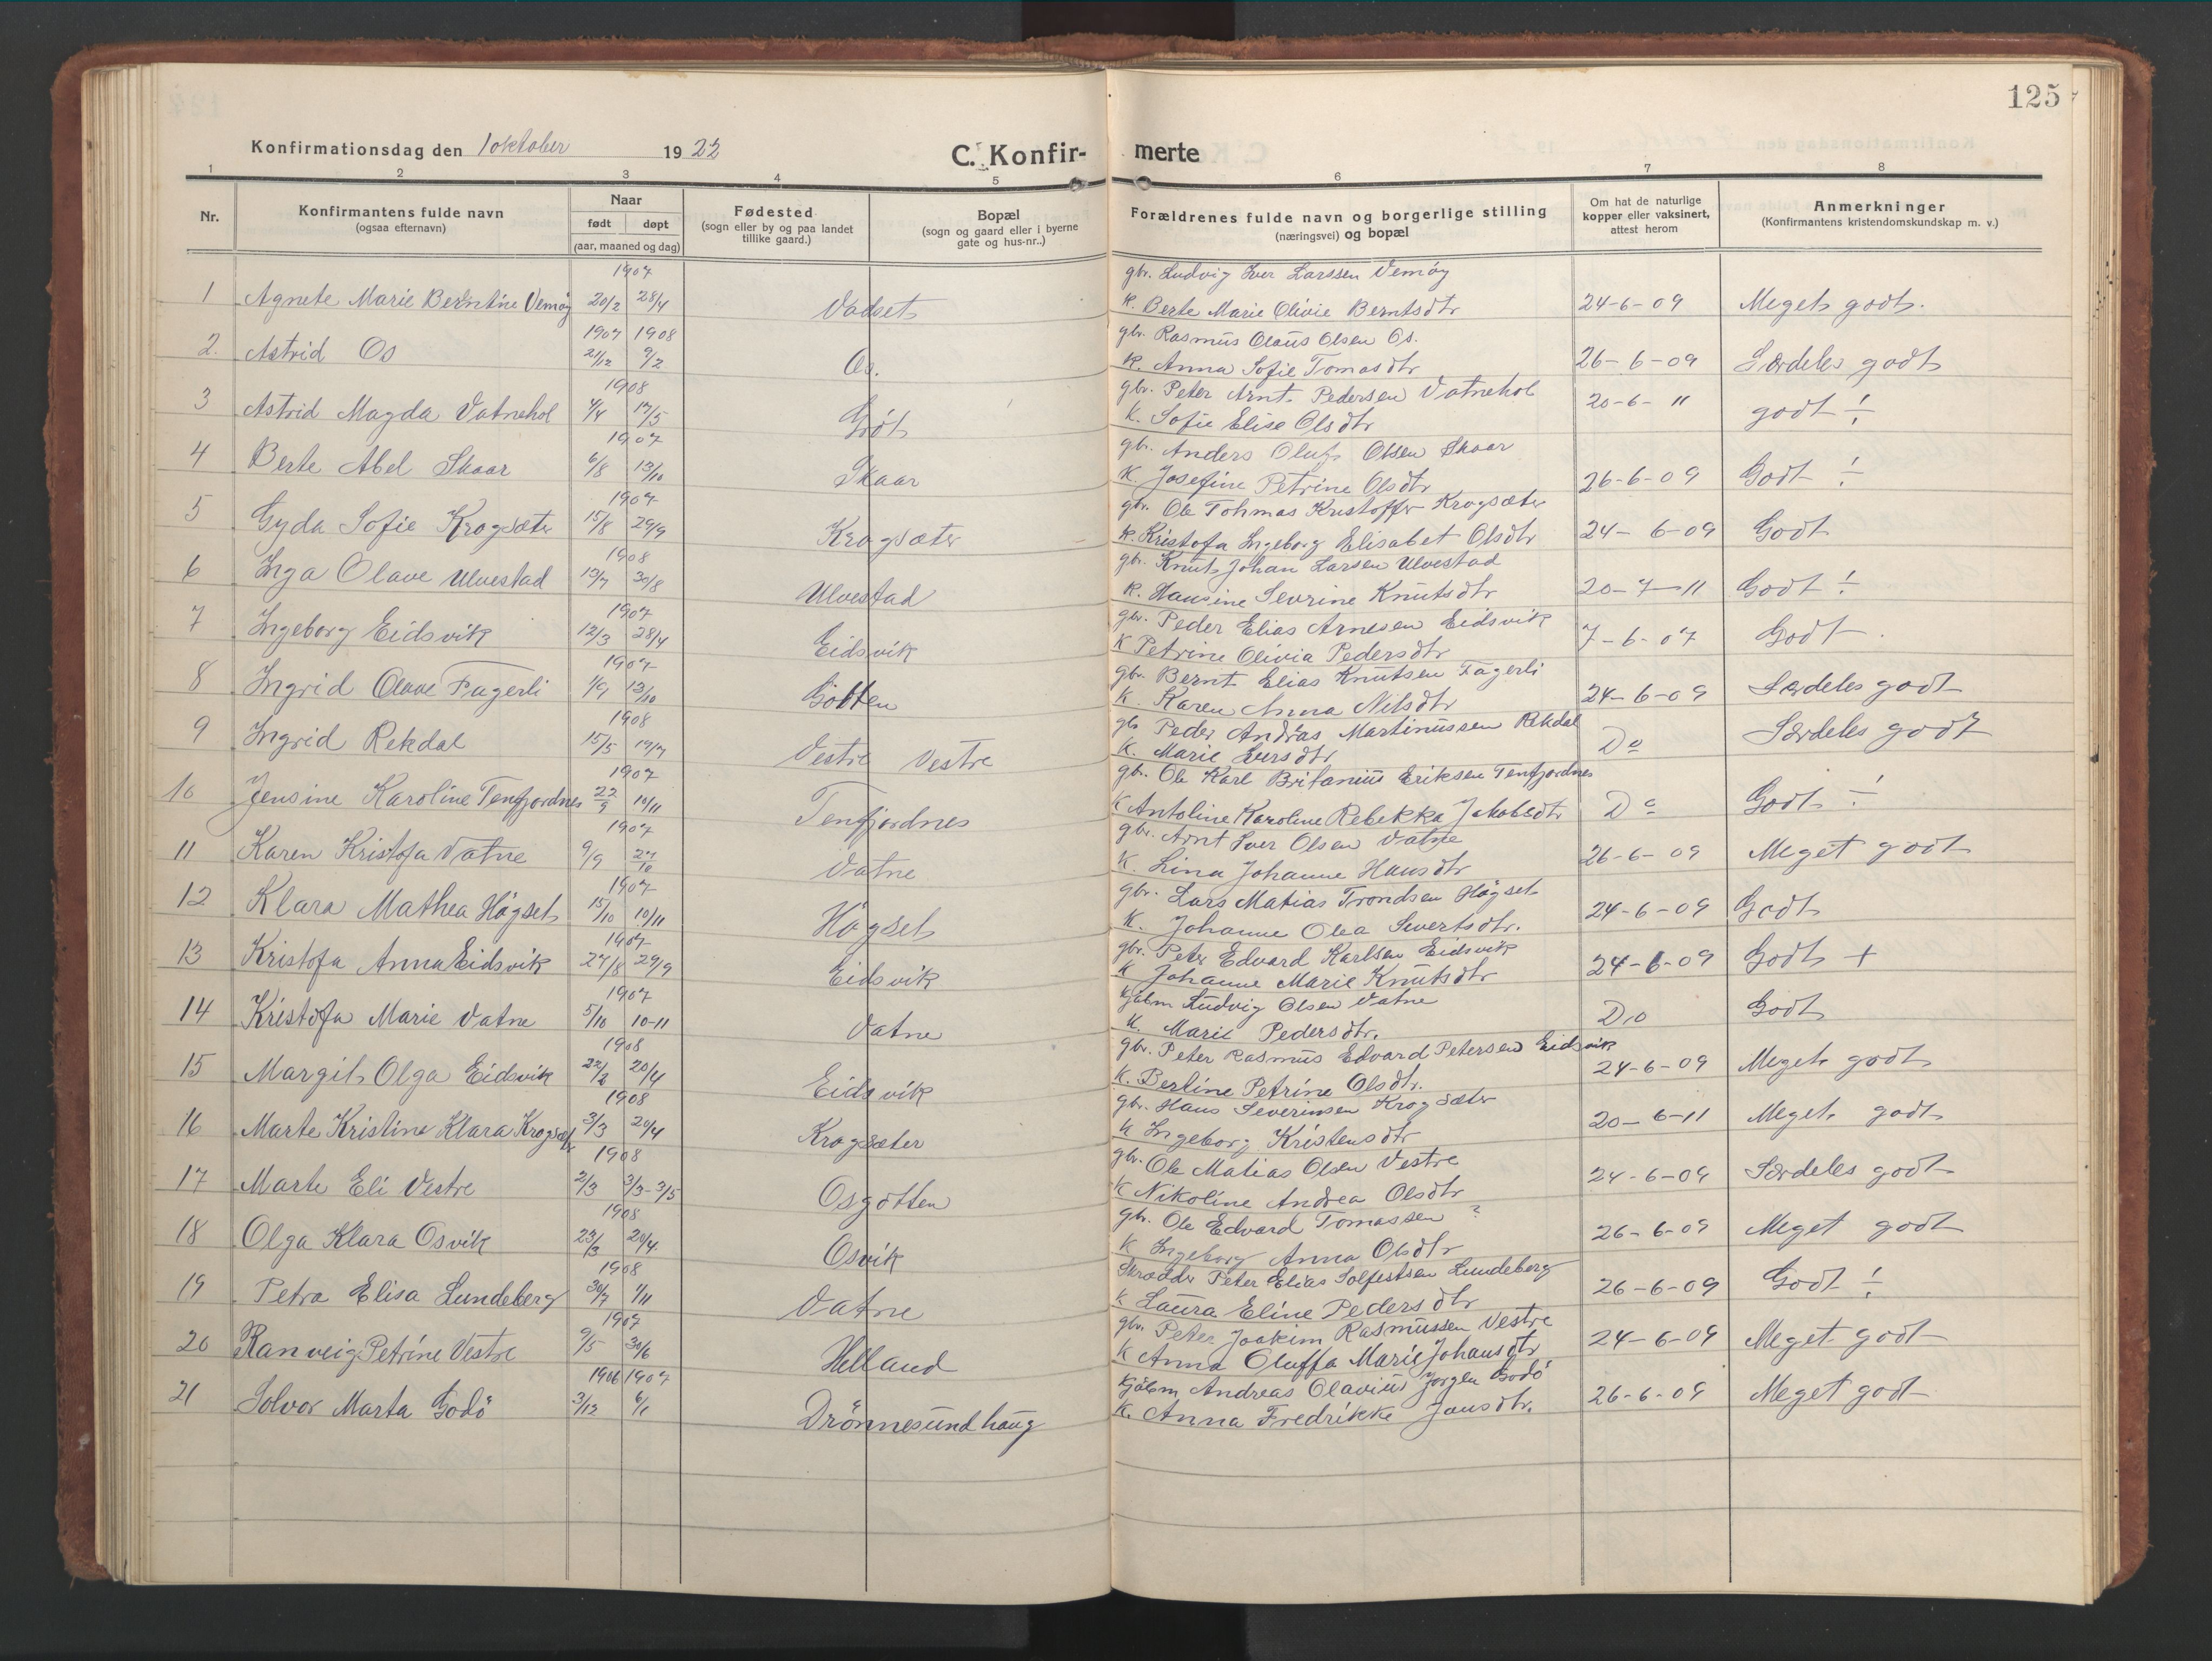 125
Konfirmationsdag den 1 oktober 1922
C. Konfirmerte
1 2 3 4 5 6 7 8
Nr.
Konfirmantens fulde navn
(ogsaa efternavn)
Naar
født døpt
(aar, maaned og dag)
Fødested
(sogn eller by og paa landet
tillike gaard.)
Bopæl
(sogn og gaard eller i byerne
gate og hus-nr..)
Forældrenes fulde navn og borgerlige stilling
(næringsvei) og bopæl
Om hat de naturlige
kopper eller vaksinert,
attest herom
Anmerkninger
(Konfirmantens kristendomskundskap m. v.)
1907 gbr. Ludvig Iver Larssen Vemøy
1 Agnete Marie Berntine Vemøy 20/2 28/4 Vadset K. Berte Marie Olivie Berntsdtr 24-6-09 Meget godt.
1907 1908 gbr. Rasmus Olaus Olsen Os.
2. Astrid Os 21/12 9/2 Os. K. Anna Sofie Tomasdtr 26-6-09 Særdeles godt
1908 gbr. Peter Arnt Pedersen Vatnehol
3 Astrid Magda Vatnehol 4/4 17/5 Grøt K. Sofie Elise Olsdtr 20-6-11 godt ÷
1907 gbr. Anders Oluf Olsen Skaar
4 Berte Abel Skaar 6/8 13/10 Skaar K. Josefine Petrine Olsdtr 26-6-09 Godt ÷
1907 gbr. Ole Tohmas Kristoffer Krogsæter
5 Gyda Sofie Krogsæter 15/8 29/9 Krogsæter K. Kristofa Ingeborg Elisabet Olsdtr 24-6-09 Godt
1908 gbr. Knut Johan Larsen Ulvestad
6 Inga Olave Ulvestad 13/7 30/8 Ulvestad K. Hansine Sevrine Knutsdtr 20-7-11 Godt ÷
1907 gbr. Peder Elias Arnesen Eidsvik
7 Ingeborg Eidsvik 12/3 28/4 Eidsvik K Petrine Olivia Pedersdtr 7-6-07 Godt.
1907 gbr. Bernt Elias Knutsen Fagerli
8 Ingrid Olave Fagerli 1/9 13/10 Götten K. Karen Anna Nilsdtr 24-6-09 Særdeles godt
1908 gb Peder Andras Martinussen Rekdal
9 Ingrid Rekdal 15/5 19/7 Vestre Vestre K. Marie Iversdtr Do Særdeles godt
1907 gbr. Ole Karl Britanius Eriksen Tenfjordnes
10 Jensine Karoline Tenfjordnes 22/9 10/11 Tenfjordnes K Antoline Karoline Rebekka Jakobsdtr Do Godt ÷
1907 gbr. Arnt Iver Olsen Vatne
11 Karen Kristofa Vatne 9/9 27/10 Vatne K. Lina Johanne Hansdtr 26-6-09 Meget godt
1907 gbr. Lars Matias Trondsen Högset
12 Klara Mathea Högset 15/10 10/11 Högset K. Johanne Olea Severtsdtr. 24-6-09 Godt
1907 gbr. Peter Edvard Karlsen Eidsvik
13 Kristofa Anna Eidsvik 27/8 29/9 Eidsvik K Johanne Marie Knutsdtr 24-6-09 Godt +
1907 Kjøbm Ludvig Olsen Vatne
14 Kristofa Marie Vatne 5/10 10-11 Vatne K. Marie Pedersdtr. Do Godt
1908 gbr. Peter Rasmus Edvard Petersen Eidsvik
15 Margit Olga Eidsvik 22/2 20/4 Eidsvik K. Berline Petrine Olsdtr. 24-6-09 Meget godt
1908 gbr. Hans Severinsen Krogsæter
16 Marte Kristine Klara Krogsæter 3/3 20/4 Krogsæter K Ingeborg Kristensdtr 20-6-11 Meget godt
1908 gbr. Ole Matias Olsen Vestre
17 Marte Eli Vestre 2/3 3/3-3/5 Osgötten K Nikoline Andrea Olsdtr 24-6-09 Særdeles godt
1908 gbr. Ole Edvard Tomassen ?
18 Olga Klara Osvik 23/3 20/4. Osvik K Ingeborg Anna Olsdtr 26-6-09 Meget godt
1908 Skrædder Peter Elias Solfestsen Lundeberg
19 Petra Elisa Lundeberg 30/7 1/11 Vatne K Laura Eline Pedersdtr 26-6-09 Godt ÷
1907 gbr. Peter Joakim Rasmussen Vestre
20 Ranveig Petrine Vestre 9/5 30/6 Helland K Anna Oluffa Marie Johansdtr 24-6-09 Meget godt
1906 1907 Kjøbm Andreas Olavius Jørgen Godö
21 Solvor Marta Godö 3/12 6/1 Drönnesundhaug K. Anna Fredrikke Jansdtr. 26-6-09 Meget godt